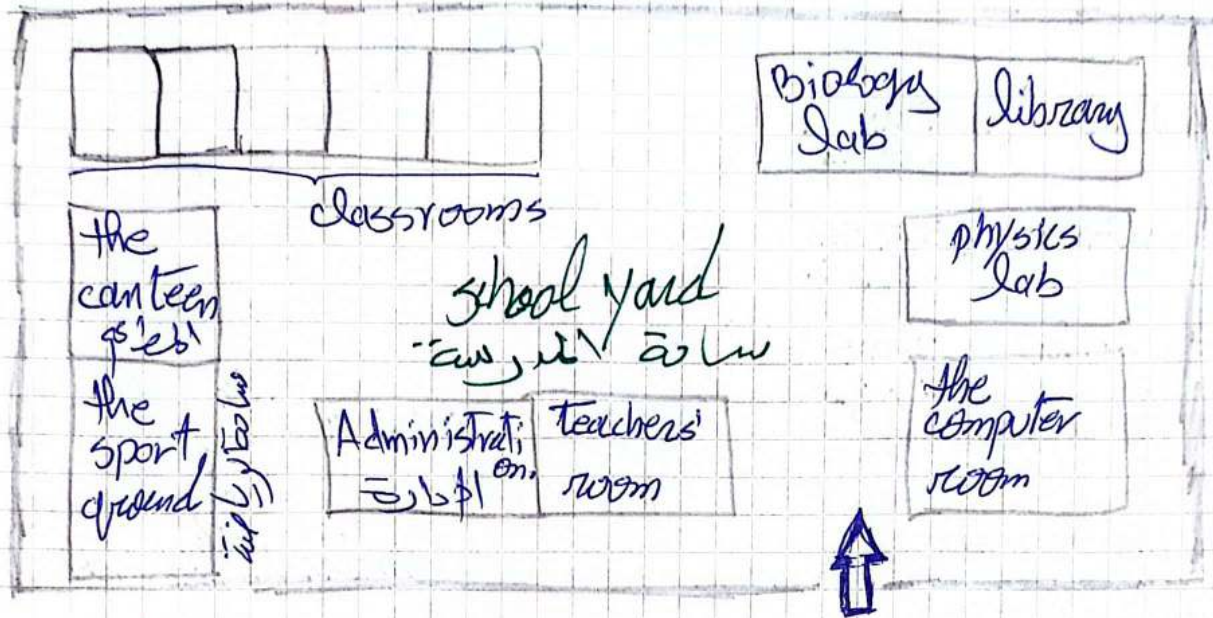 Biology
lab
library
classrooms
the
canteen
physics
lab
school yard
ساحة المدرسة
the
sport
ground
ساحة الرياضة
Administrati
on.
الإدارة
teachers'
room
the
computer
room